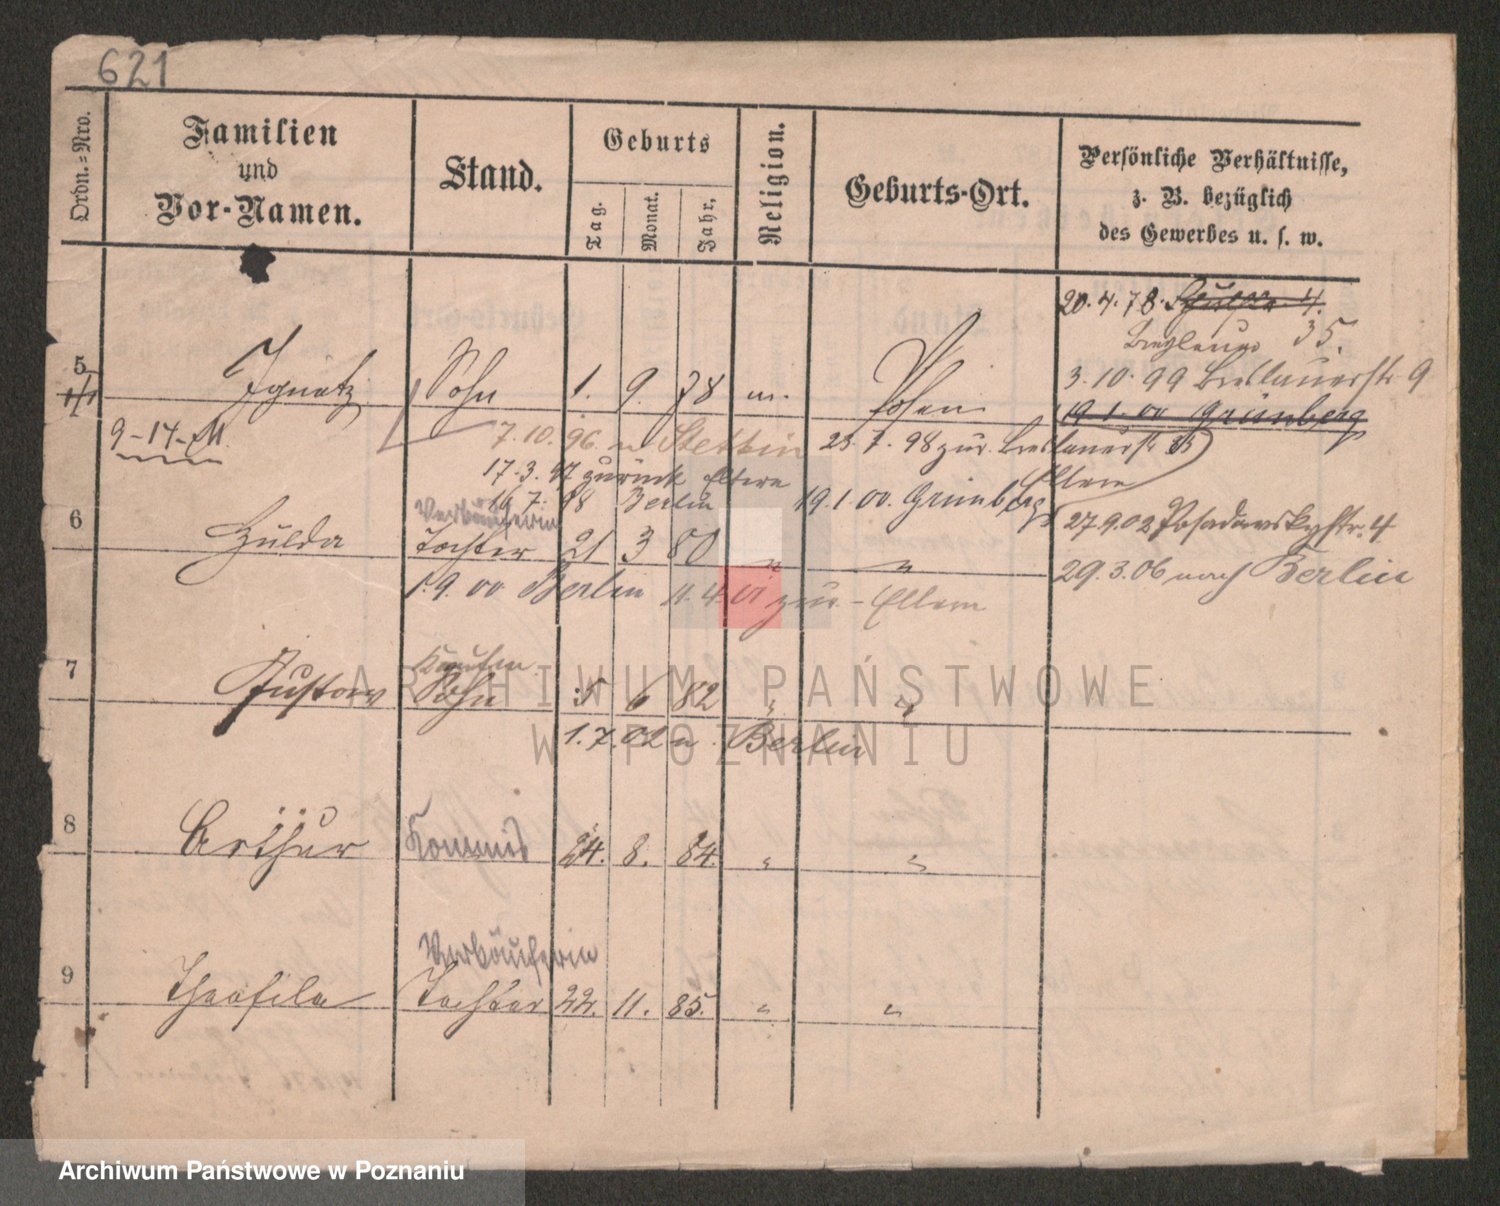 621
Ordn.=Nro.
Familien
und
Vor-Namen.
Stand.
Geburts
Tag.
Monat.
Jahr.
Religion.
Geburts-Ort.
Persönliche Verhältnisse,
z. B. bezüglich
des Gewerbes u. s. w.
20.4.78. 4.
35.
5 Ignatz Sohn 1. 9. 78 m. Posen
3.10.99 Breslauerstr 9
19.1.00 Grünberg
9-14-M.
7.10.96 n Stettin 23.7.98 zur. Breslauerstr 35
17.3.97 zurück Eltern
Eltern
16.7.98 Berlin 19.1.00. Grünberg
27.9.02 Posadowskystr. 4
Verkäuferin
6 Hulda Tochter 21 3 80 " "
29.3.06 nach Berlin
1.9.00 Berlin 11.4.01 zur - Eltern
Kaufm
7 Gustav Sohn 5 6 82 " "
1.7.02 n. Berlin
8 Arthur Kommis 24. 8. 84. " "
Verkäuferin
9 Theofila Tochter 22. 11. 85. " "
ARCHIWUM PAŃSTWOWE
W POZNANIU
Archiwum Państwowe w Poznaniu